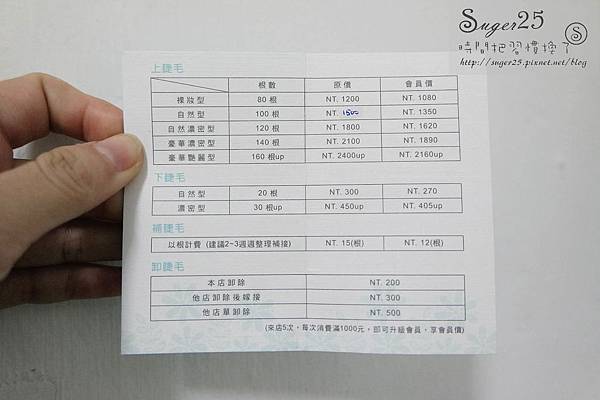 Suger25
時間把習慣換了 S
http://suger25.pixnet.net/blog
上睫毛
根數 原價 會員價
裸妝型 80根 NT. 1200 NT. 1080
自然型 100根 NT. 1500 NT. 1350
自然濃密型 120根 NT. 1800 NT. 1620
豪華濃密型 140根 NT. 2100 NT. 1890
豪華艷麗型 160根up NT. 2400up NT. 2160up
下睫毛
自然型 20根 NT. 300 NT. 270
濃密型 30根up NT. 450up NT. 405up
補睫毛
以根計費 (建議2~3週週整理補接) NT. 15(根) NT. 12(根)
卸睫毛
本店卸除 NT. 200
他店卸除後嫁接 NT. 300
他店單卸除 NT. 500
(來店5次，每次消費滿1000元，即可升級會員，享會員價)